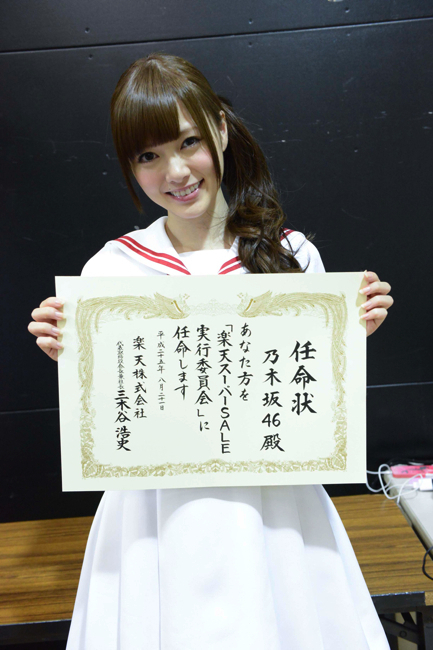 任命状
乃木坂46殿
あなた方を
「楽天スーパーSALE
実行委員会」に
任命します
平成二十五年八月二十一日
楽天株式会社
代表取締役会長兼社長
三木谷浩史